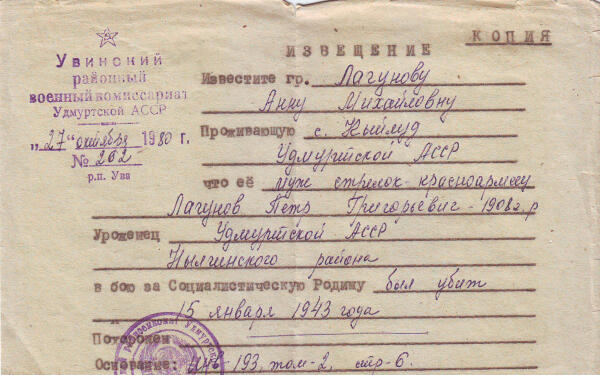 КОПИЯ
ИЗВЕЩЕНИЕ
Увинский
районный
военный комиссариат
Удмуртской АССР
„27" октября 1980 г.
№ 202
р.п. Ува
Известите гр. Лагунову
Анну Михайловну
Проживающую с. Кыйлуд
Удмуртской АССР
что её муж стрелок-красноармеец
Лагунов Петр Григорьевич-1908г.р
Уроженец Удмуртской АССР
Нылгинского района
в бою за Социалистическую Родину был убит
15 января 1943 года
Похоронен
Основание: 193, том-2, стр-6.